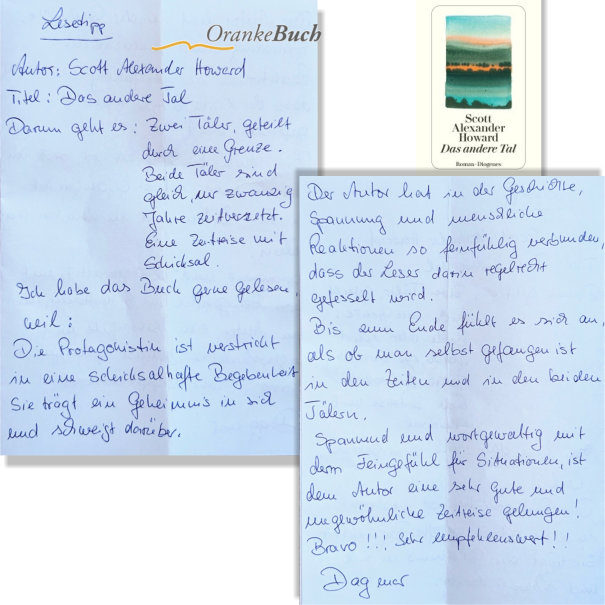 Lesetipp
OrankeBuch
Autor: Scott Alexander Howard
Titel: Das andere Tal
Darum geht es: Zwei Täler, geteilt
durch eine Grenze.
Beide Täler sind
gleich, nur zwanzig
Jahre zeitversetzt.
Eine Zeitreise mit
Schicksal.
Ich habe das Buch gerne gelesen,
weil:
Die Protagonistin ist verstrickt
in eine schicksalhafte Begebenheit
Sie trägt ein Geheimnis in sich
und schweigt darüber.
Scott
Alexander
Howard
Das andere Tal
Roman · Diogenes
Der Autor hat in der Geschichte,
Spannung und menschliche
Reaktionen so feinfühlig verbunden,
dass der Leser darin regelrecht
gefesselt wird.
Bis zum Ende fühlt es sich an,
als ob man selbst gefangen ist
in den Zeiten und in den beiden
Tälern.
Spannend und wortgewaltig mit
dem Feingefühl für Situationen, ist
dem Autor eine sehr gute und
ungewöhnliche Zeitreise gelungen!
Bravo!!! Sehr empfehlenswert!!
Dagmar